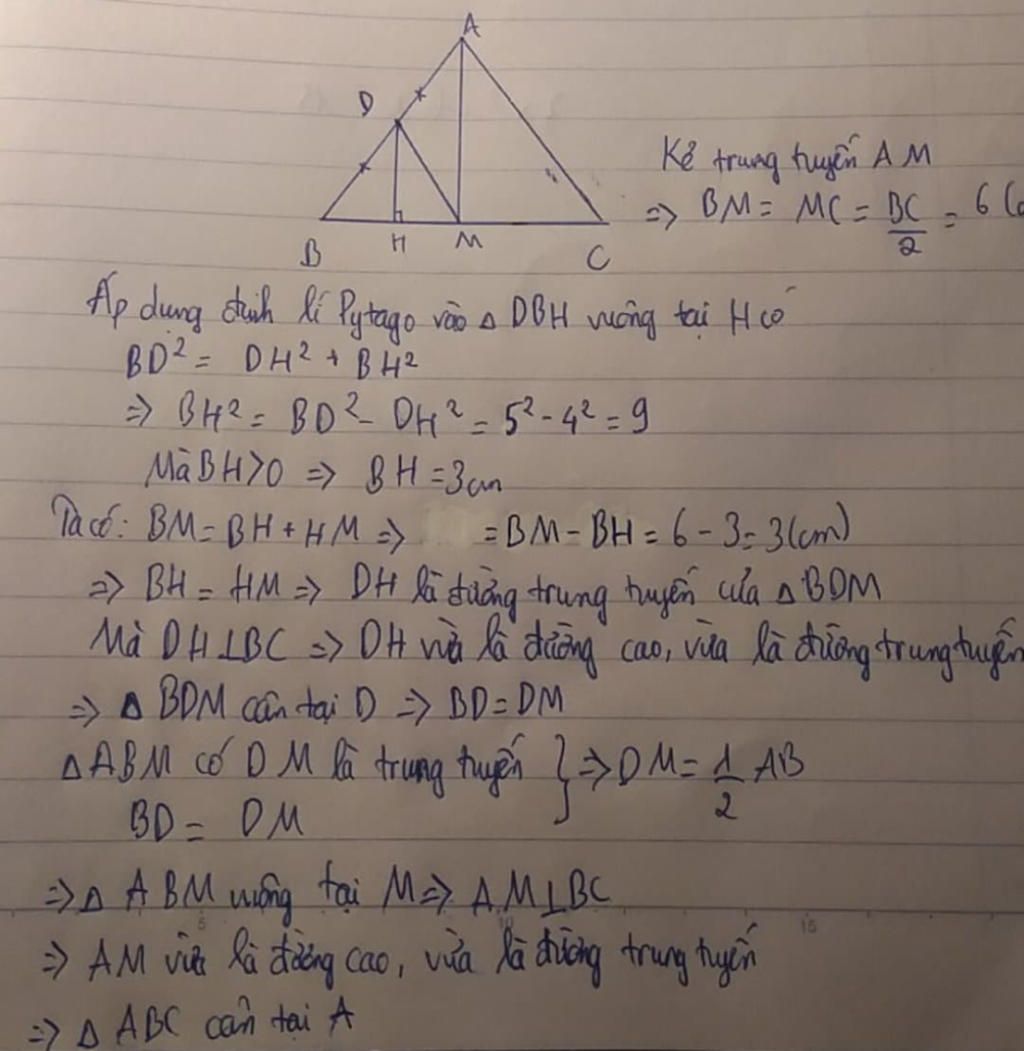 A
D
B
H
M
C
Kẻ trung tuyến AM
=> BM = MC = BC/2 = 6 (c
Áp dụng định lí Pytago vào △ DBH vuông tại H có
BD² = DH² + BH²
=> BH² = BD² - DH² = 5² - 4² = 9
Mà BH > 0 => BH = 3cm
Ta có: BM = BH + HM => = BM - BH = 6 - 3 = 3(cm)
=> BH = HM => DH là đường trung tuyến của △ BDM
Mà DH ⊥ BC => DH vừa là đường cao, vừa là đường trung tuyến
=> △ BDM cân tại D => BD = DM
△ ABM có DM là trung tuyến } => DM = 1/2 AB
BD = DM
=> △ ABM vuông tại M => AM ⊥ BC
5 10 15
=> AM vừa là đường cao, vừa là đường trung tuyến
=> △ ABC cân tại A